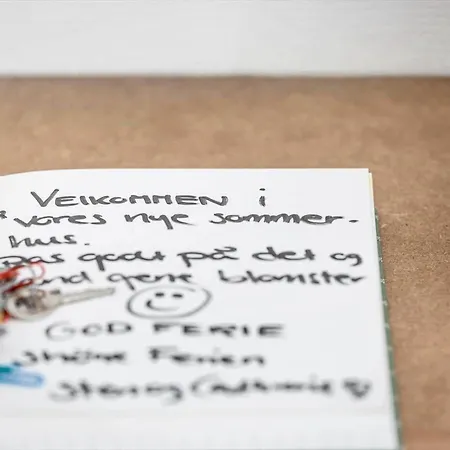 VELKOMMEN i
vores nye sommer-
hus.
Pas godt på det og
vand gerne blomster
GOD FERIE
Schöne Ferien